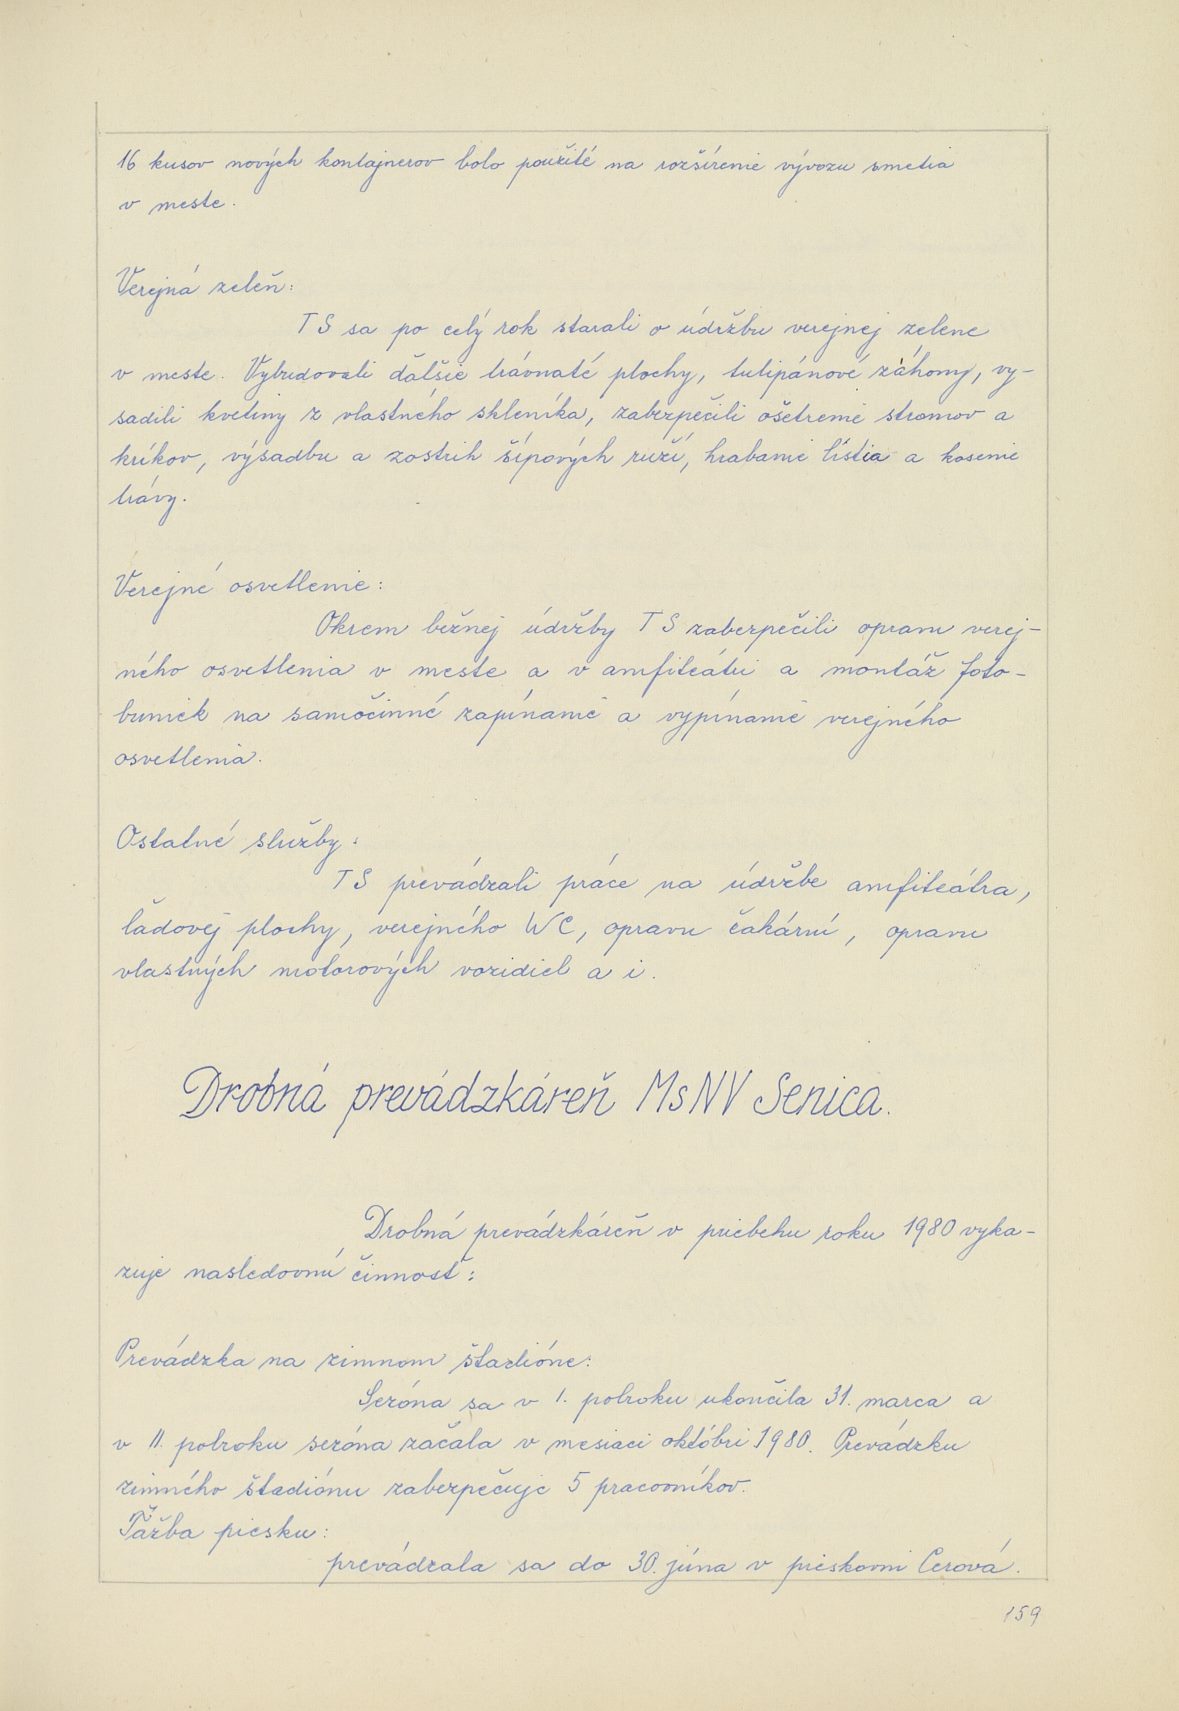 16 kusov nových kontajnerov bolo použité na rozšírenie vývozu smetia
v meste.
Verejná zeleň:
TS sa po celý rok starali o údržbu verejnej zelene
v meste. Vybudovali ďalšie trávnaté plochy, tulipánové záhony, vy-
sadili kvetiny z vlastného skleníka, zabezpečili ošetrenie stromov a
kríkov, výsadbu a zostrih šípových ruží, hrabanie lístia a kosenie
trávy.
Verejné osvetlenie:
Okrem bežnej údržby TS zabezpečili opravu verej-
ného osvetlenia v meste a v amfiteátri a montáž foto-
buniek na samočinné zapínanie a vypínanie verejného
osvetlenia.
Ostatné služby:
TS prevádzali práce na údržbe amfiteátra,
ľadovej plochy, verejného WC, opravu čakární, opravu
vlastných motorových vozidiel a i.
Drobná prevádzkáreň MsNV Senica.
Drobná prevádzkáreň v priebehu roku 1980 vyka-
zuje nasledovnú činnosť:
Prevádzka na zimnom štadióne:
Sezóna sa v I. polroku ukončila 31. marca a
v II. polroku sezóna začala v mesiaci októbri 1980. Prevádzku
zimného štadiónu zabezpečuje 5 pracovníkov.
Ťažba piesku:
prevádzala sa do 30. júna v pieskovni Cerová.
159